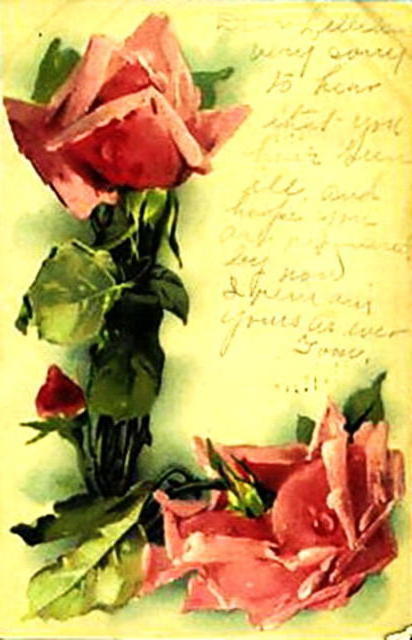 Dear Lillian
very sorry
to hear
that you
have been
ill and
hope you
are
by now
I remain
yours as ever
Tom.